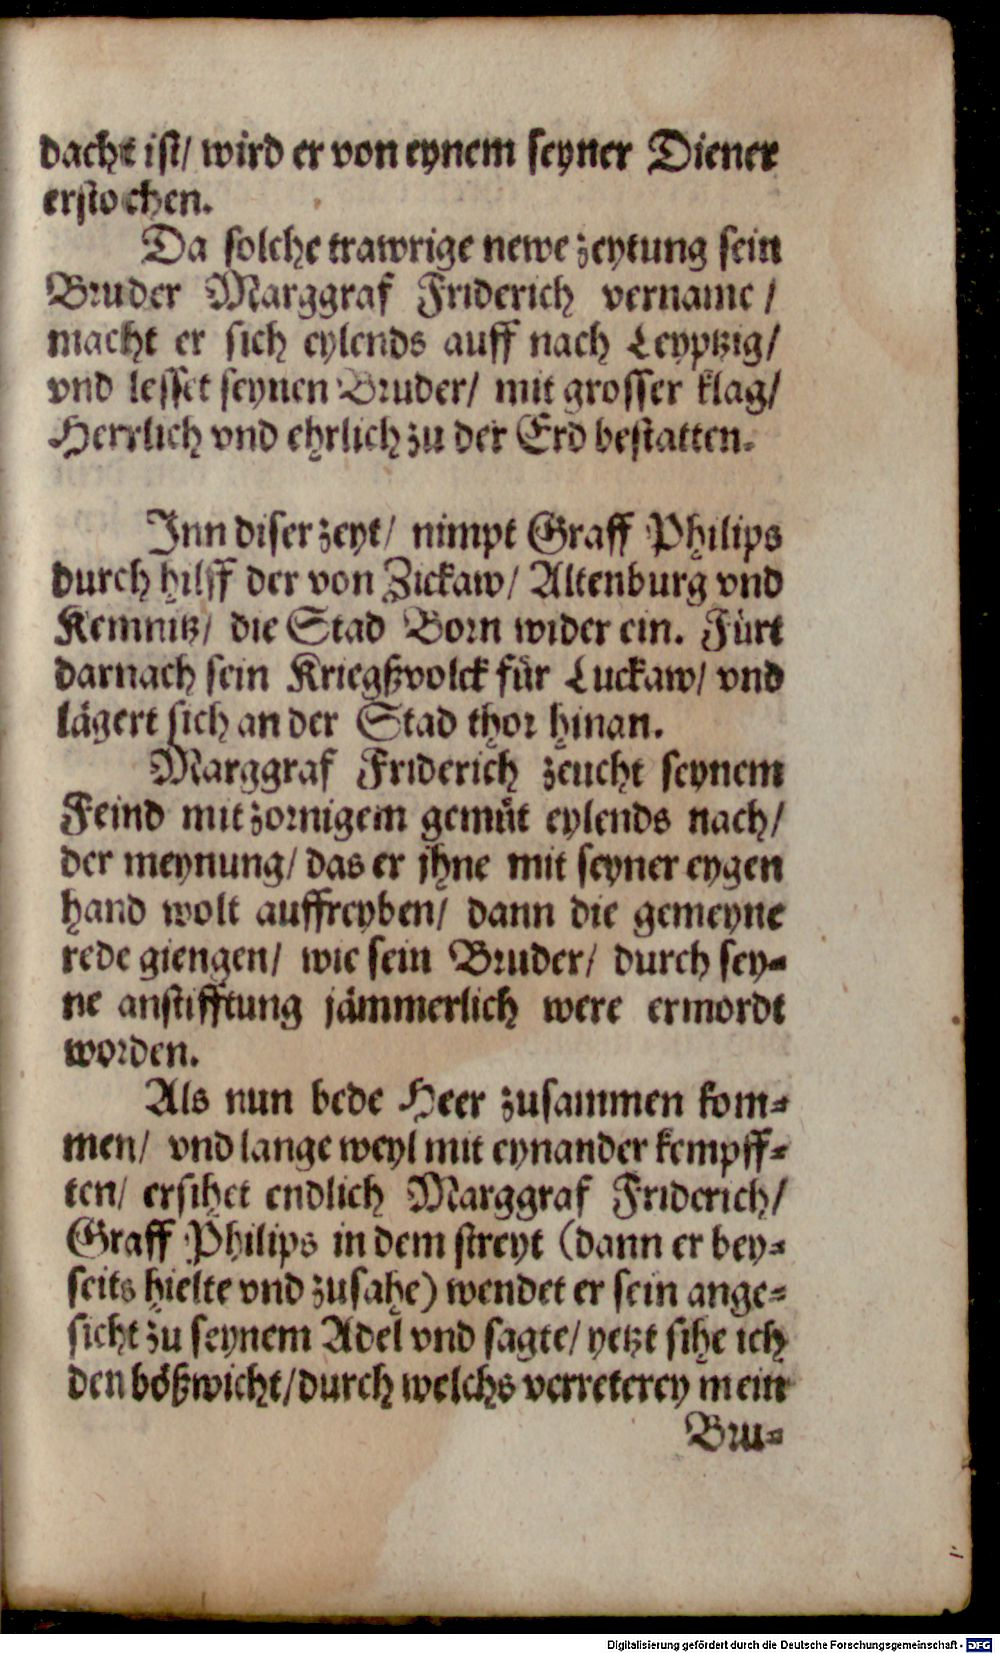 dacht ist/ wird er von eynem seyner Diener
erstochen.
Da solche trawrige newe zeytung sein
Bruder Marggraf Friderich vername /
macht er sich eylends auff nach Leyptzig/
vnd lesset seynen Bruder/ mit grosser klag/
Herrlich vnd ehrlich zu der Erd bestatten.
Inn diser zeyt/ nimpt Graff Philips
durch hilff der von Zickaw/ Altenburg vnd
Kemnitz/ die Stad Born wider ein. Fürt
darnach sein Kriegßvolck für Luckaw/ vnd
lägert sich an der Stad thor hinan.
Marggraf Friderich zeucht seynem
Feind mit zornigem gemüt eylends nach/
der meynung/ das er jhne mit seyner eygen
hand wolt auffreyben/ dann die gemeyne
rede giengen/ wie sein Bruder/ durch sey-
ne anstifftung jämmerlich were ermordt
worden.
Als nun bede Heer zusammen kom-
men/ vnd lange weyl mit eynander kempff-
ten/ ersihet endlich Marggraf Friderich/
Graff Philips in dem streyt (dann er bey-
seits hielte vnd zusahe) wendet er sein ange-
sicht zu seynem Adel vnd sagte/ yetzt sihe ich
den bößwicht/ durch welchs verreterey mein
Bru-
Digitalisierung gefördert durch die Deutsche Forschungsgemeinschaft - DFG